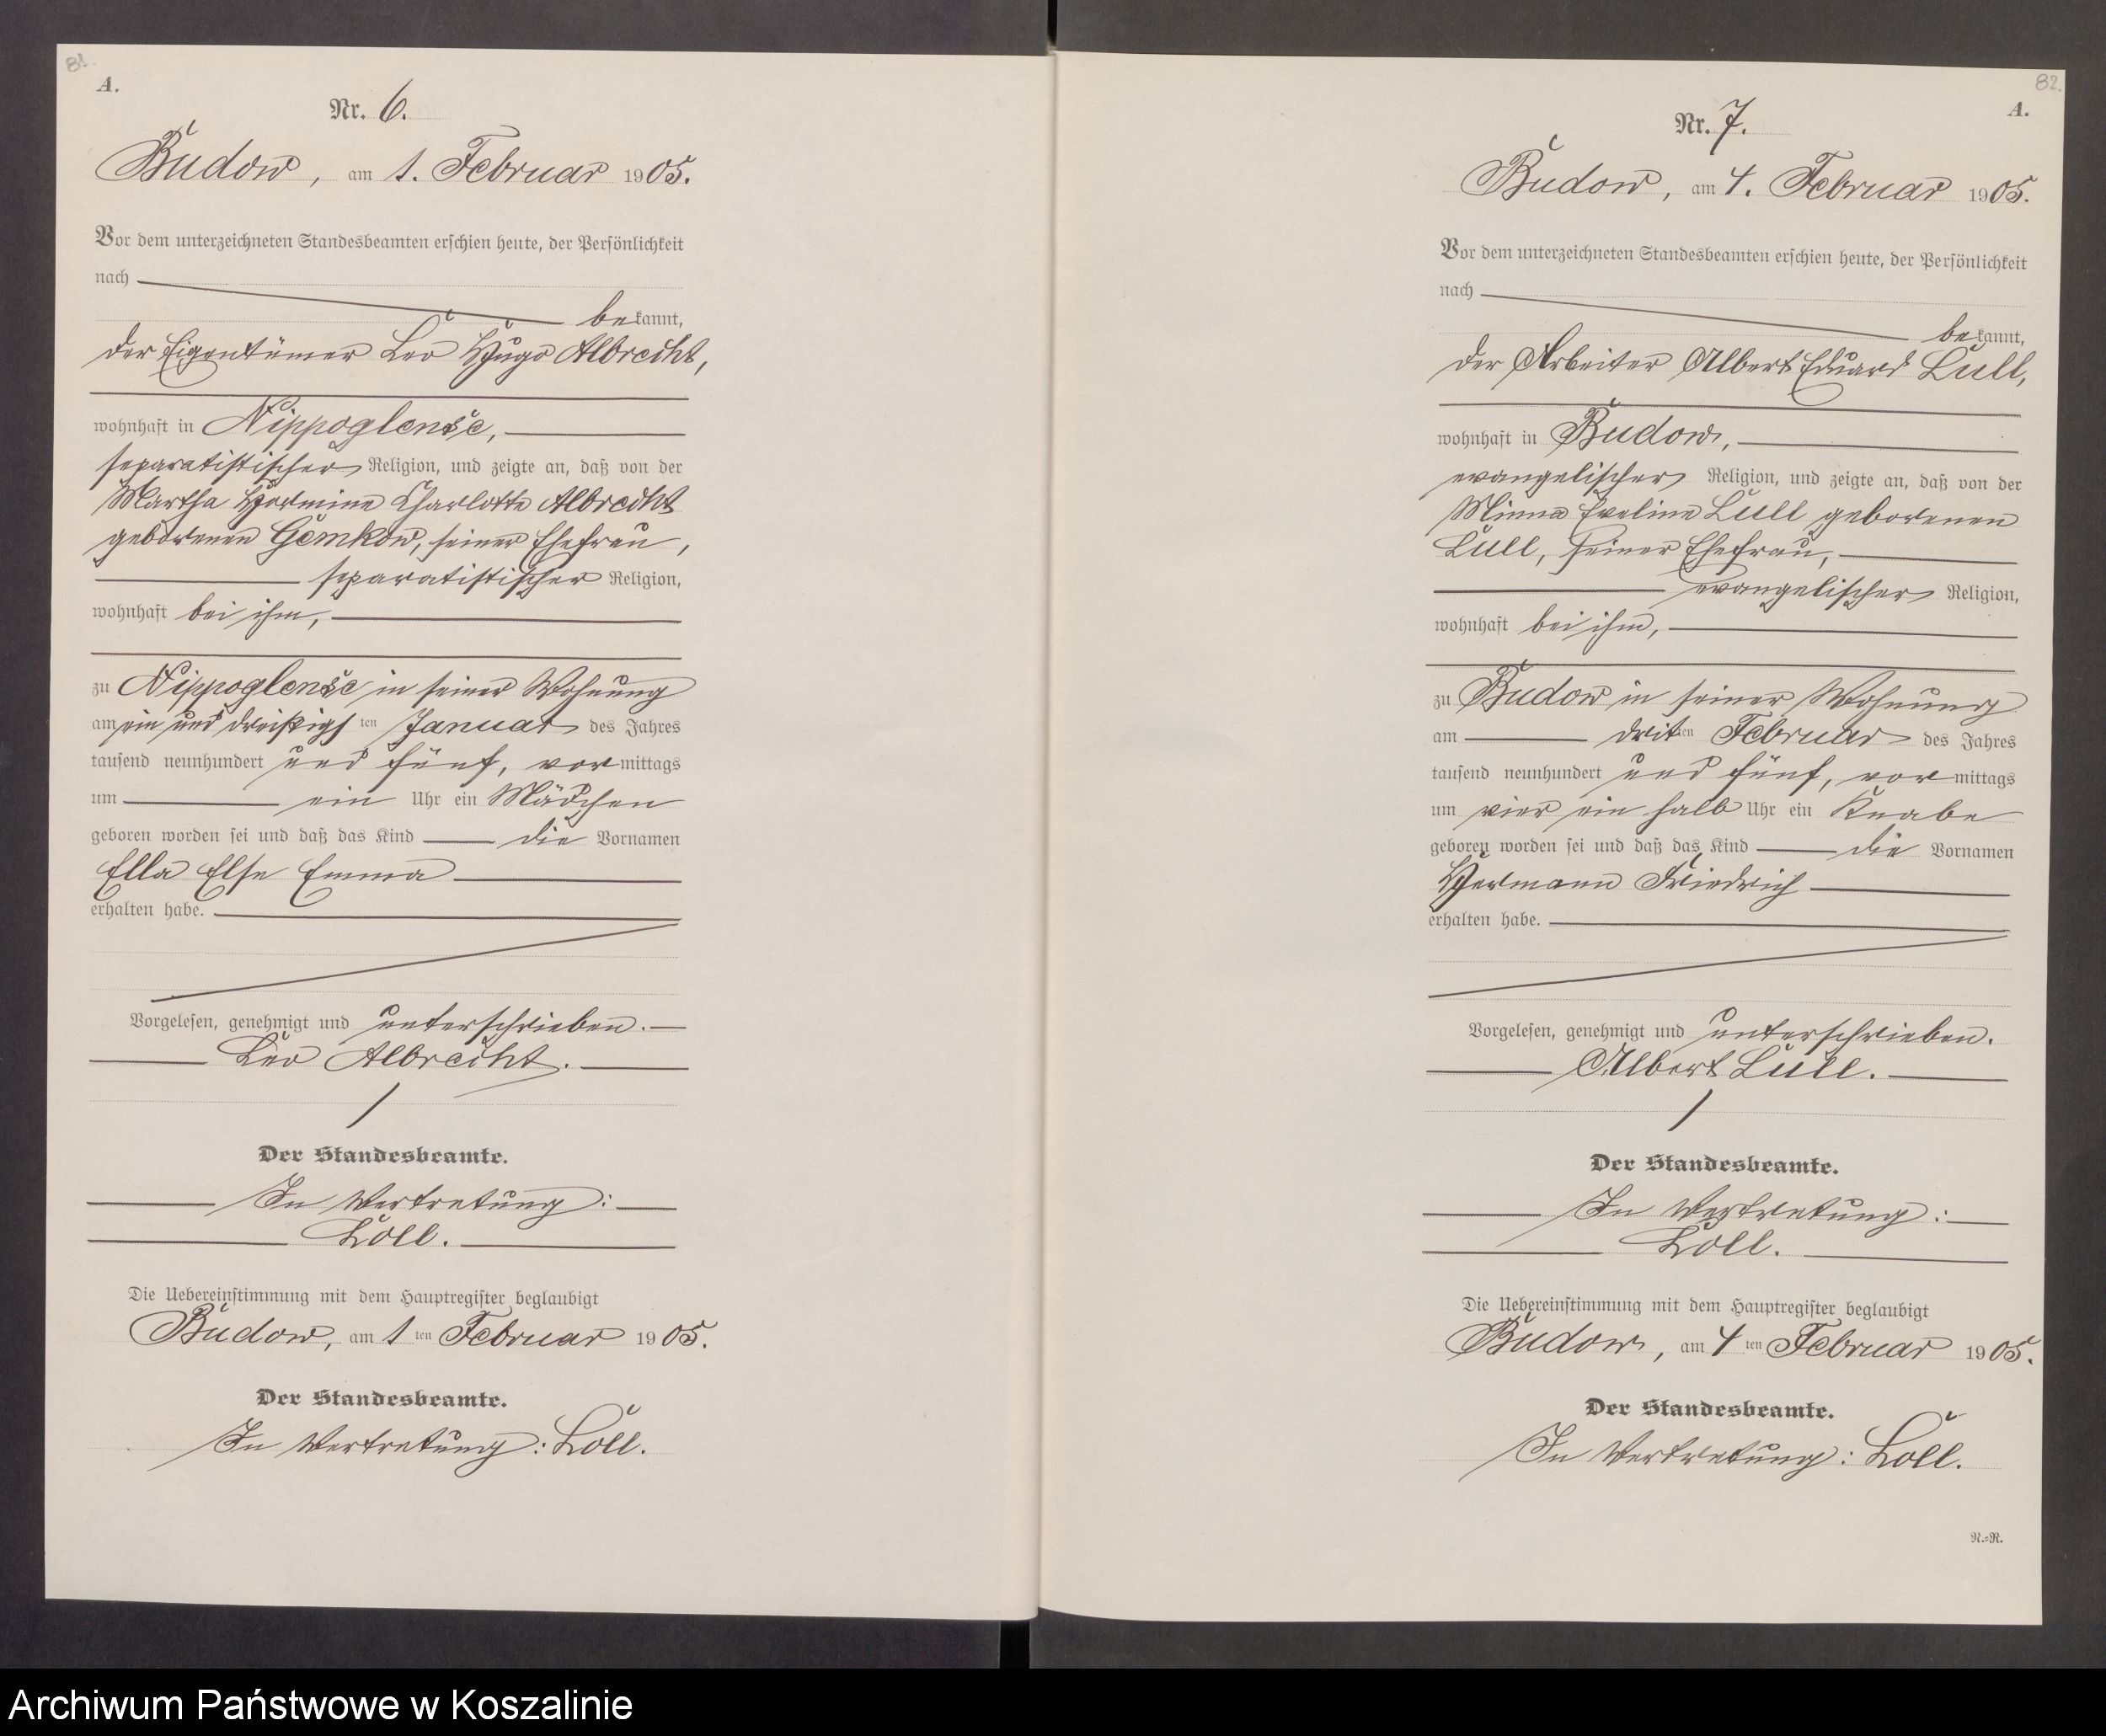 81.
A.
Nr. 6.
Budow, am 1. Februar 1905.
Vor dem unterzeichneten Standesbeamten erschien heute, der Persönlichkeit
nach
bekannt,
der Eigentümer Leo Hugo Albrecht,
wohnhaft in Nippoglense,
separatistischer Religion, und zeigte an, daß von der
Martha Hermine Charlotte Albrecht
geborenen Gemkow, seiner Ehefrau,
separatistischer Religion,
wohnhaft bei ihm,
zu Nippoglense in seiner Wohnung
am ein und dreißigsten Januar des Jahres
tausend neunhundert und fünf, vormittags
um ein Uhr ein Mädchen
geboren worden sei und daß das Kind die Vornamen
Ella Else Emma
erhalten habe.
Vorgelesen, genehmigt und unterschrieben.
Leo Albrecht.
Der Standesbeamte.
In Vertretung:
Loll.
Die Uebereinstimmung mit dem Hauptregister beglaubigt
Budow, am 1ten Februar 1905.
Der Standesbeamte.
In Vertretung: Loll.
82.
A.
Nr. 7.
Budow, am 4. Februar 1905.
Vor dem unterzeichneten Standesbeamten erschien heute, der Persönlichkeit
nach
bekannt,
der Arbeiter Albert Eduard Lull,
wohnhaft in Budow,
evangelischer Religion, und zeigte an, daß von der
Minna Eveline Lull geborenen
Lull, seiner Ehefrau,
evangelischer Religion,
wohnhaft bei ihm,
zu Budow in seiner Wohnung
am dritten Februar des Jahres
tausend neunhundert und fünf, vormittags
um vier ein halb Uhr ein Knabe
geboren worden sei und daß das Kind die Vornamen
Hermann Friedrich
erhalten habe.
Vorgelesen, genehmigt und unterschrieben.
Albert Lull.
Der Standesbeamte.
In Vertretung:
Loll.
Die Uebereinstimmung mit dem Hauptregister beglaubigt
Budow, am 4ten Februar 1905.
Der Standesbeamte.
In Vertretung: Loll.
N.=R.
Archiwum Państwowe w Koszalinie